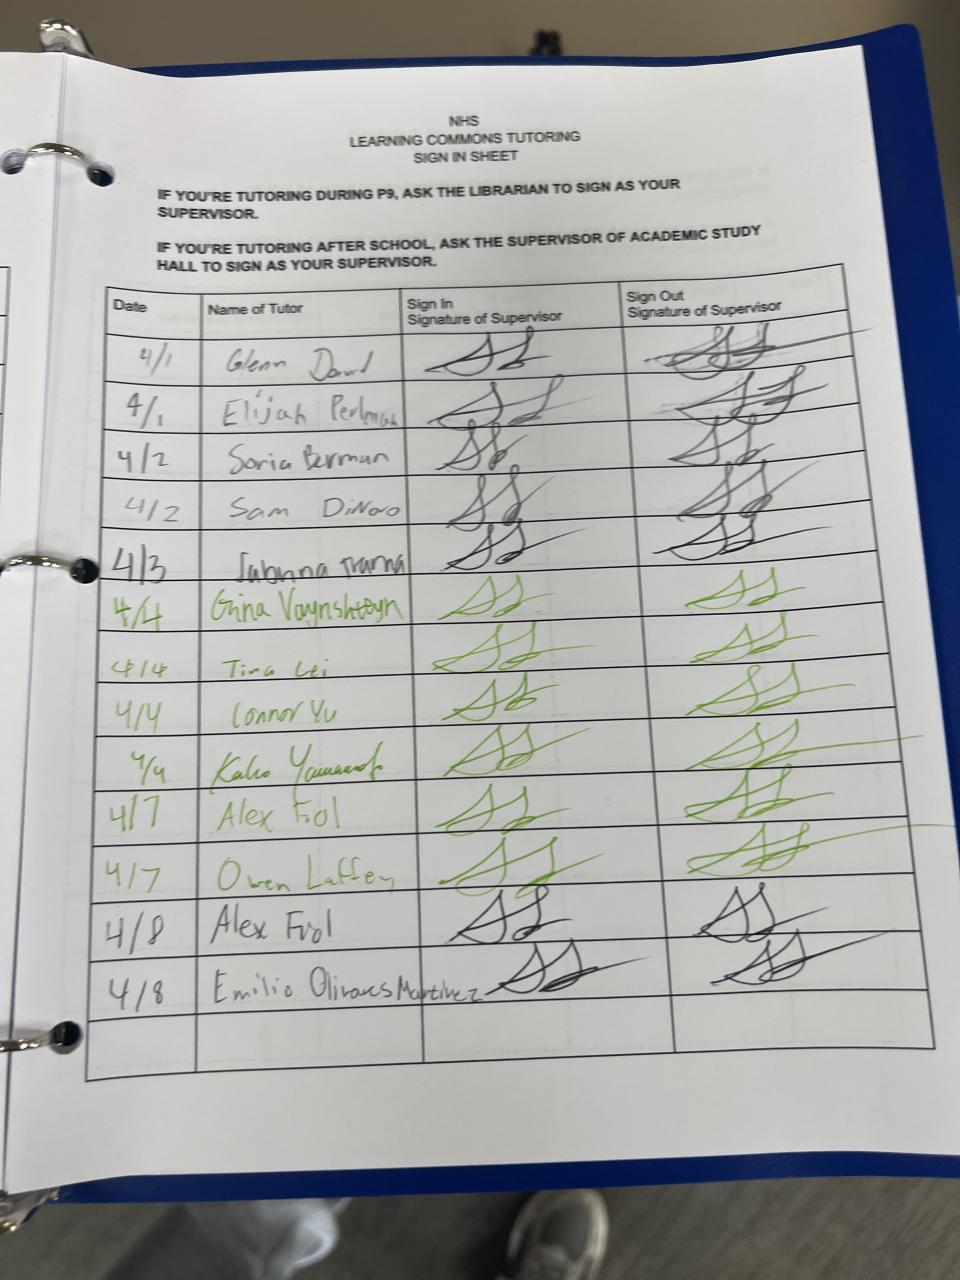 NHS
LEARNING COMMONS TUTORING
SIGN IN SHEET
IF YOU'RE TUTORING DURING P9, ASK THE LIBRARIAN TO SIGN AS YOUR
SUPERVISOR.
IF YOU'RE TUTORING AFTER SCHOOL, ASK THE SUPERVISOR OF ACADEMIC STUDY
HALL TO SIGN AS YOUR SUPERVISOR.
Date Name of Tutor Sign In Signature of Supervisor Sign Out Signature of Supervisor
4/1 Glenn David
4/1 Elijah Perlman
4/2 Sonia Berman
4/2 Sam DiNovo
4/3
4/4 Gina Vaynshteyn
4/4 Tina Lei
4/4 Connor Yu
4/4 Kaho
4/7 Alex Fiol
4/7 Owen Laffey
4/8 Alex Fiol
4/8 Emilio Olivares Martinez